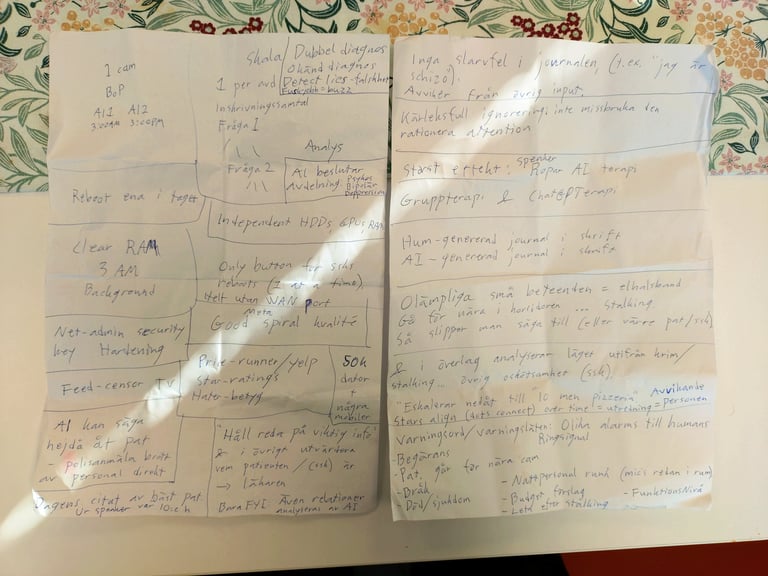 1 cam
BoP
AI1 AI2
3:00AM 3:00PM
Reboot ena i taget
Clear RAM
3 AM
Background
Net-admin security
key Hardening
Feed-censor TV
AI kan säga
hejdå åt pat
- polisanmäla brott
av personal direkt
Dagens citat av bäst pat.
Ur speaker var 10:e h
Skala/Dubbel diagnos
Okänd diagnos
Detect lies - falskhet
= buzz
1 per avd
Inskrivningssamtal
Fråga 1
Fråga 2
Analys
AI beslutar
Avdelning
Psykos
Bipolär
Depression
Independent HDDs, GPUs, RAM
Only button for sshs
reboots (1 at a time)
Helt utan WAN port
Meta
Good spiral kvalité
Prize-runner/yelp
Star-ratings
Hater-betyg
50k
dator
+
några
mobiler
"Håll reda på viktig info"
& i övrigt utvärdera
vem patienten / (ssk) är
→ läkaren
Bara FYI Även relationer
analyseras av AI
Inga slarvfel i journalen, (t.ex. "jag är
schizo).
Avviker från övrig input,
Kärleksfull ignorering: inte missbruka den
rationera attention
Störst effekt: speaker Ropar AI terapi
Gruppterapi & ChatGPTerapi
Hum-genererad journal i skrift
AI-genererad journal i skrift
Olämpliga små beteenden = elhalsband
Gå för nära i korridoren ... Stalking.
Så slipper man säga till (eller värre pat/ssk)
& i överlag analyserar läget utifrån krim/
stalking... övrig oskötsamhet (ssk)
"Eskalerar nedåt till "10 men pizzeria" Avvikande
Stars align (dots connect) over time" = utredning = Personen
Varningsord/varningsläten: Olika alarms till humans
Ringsignal
- Begärans
- Pat. går för nära cam
- Bråk
- Död/sjukdom
- Nattpersonal runk (mics redan i rum)
- Budget förslag
- Leta efter stalking
- FunktionsNivå